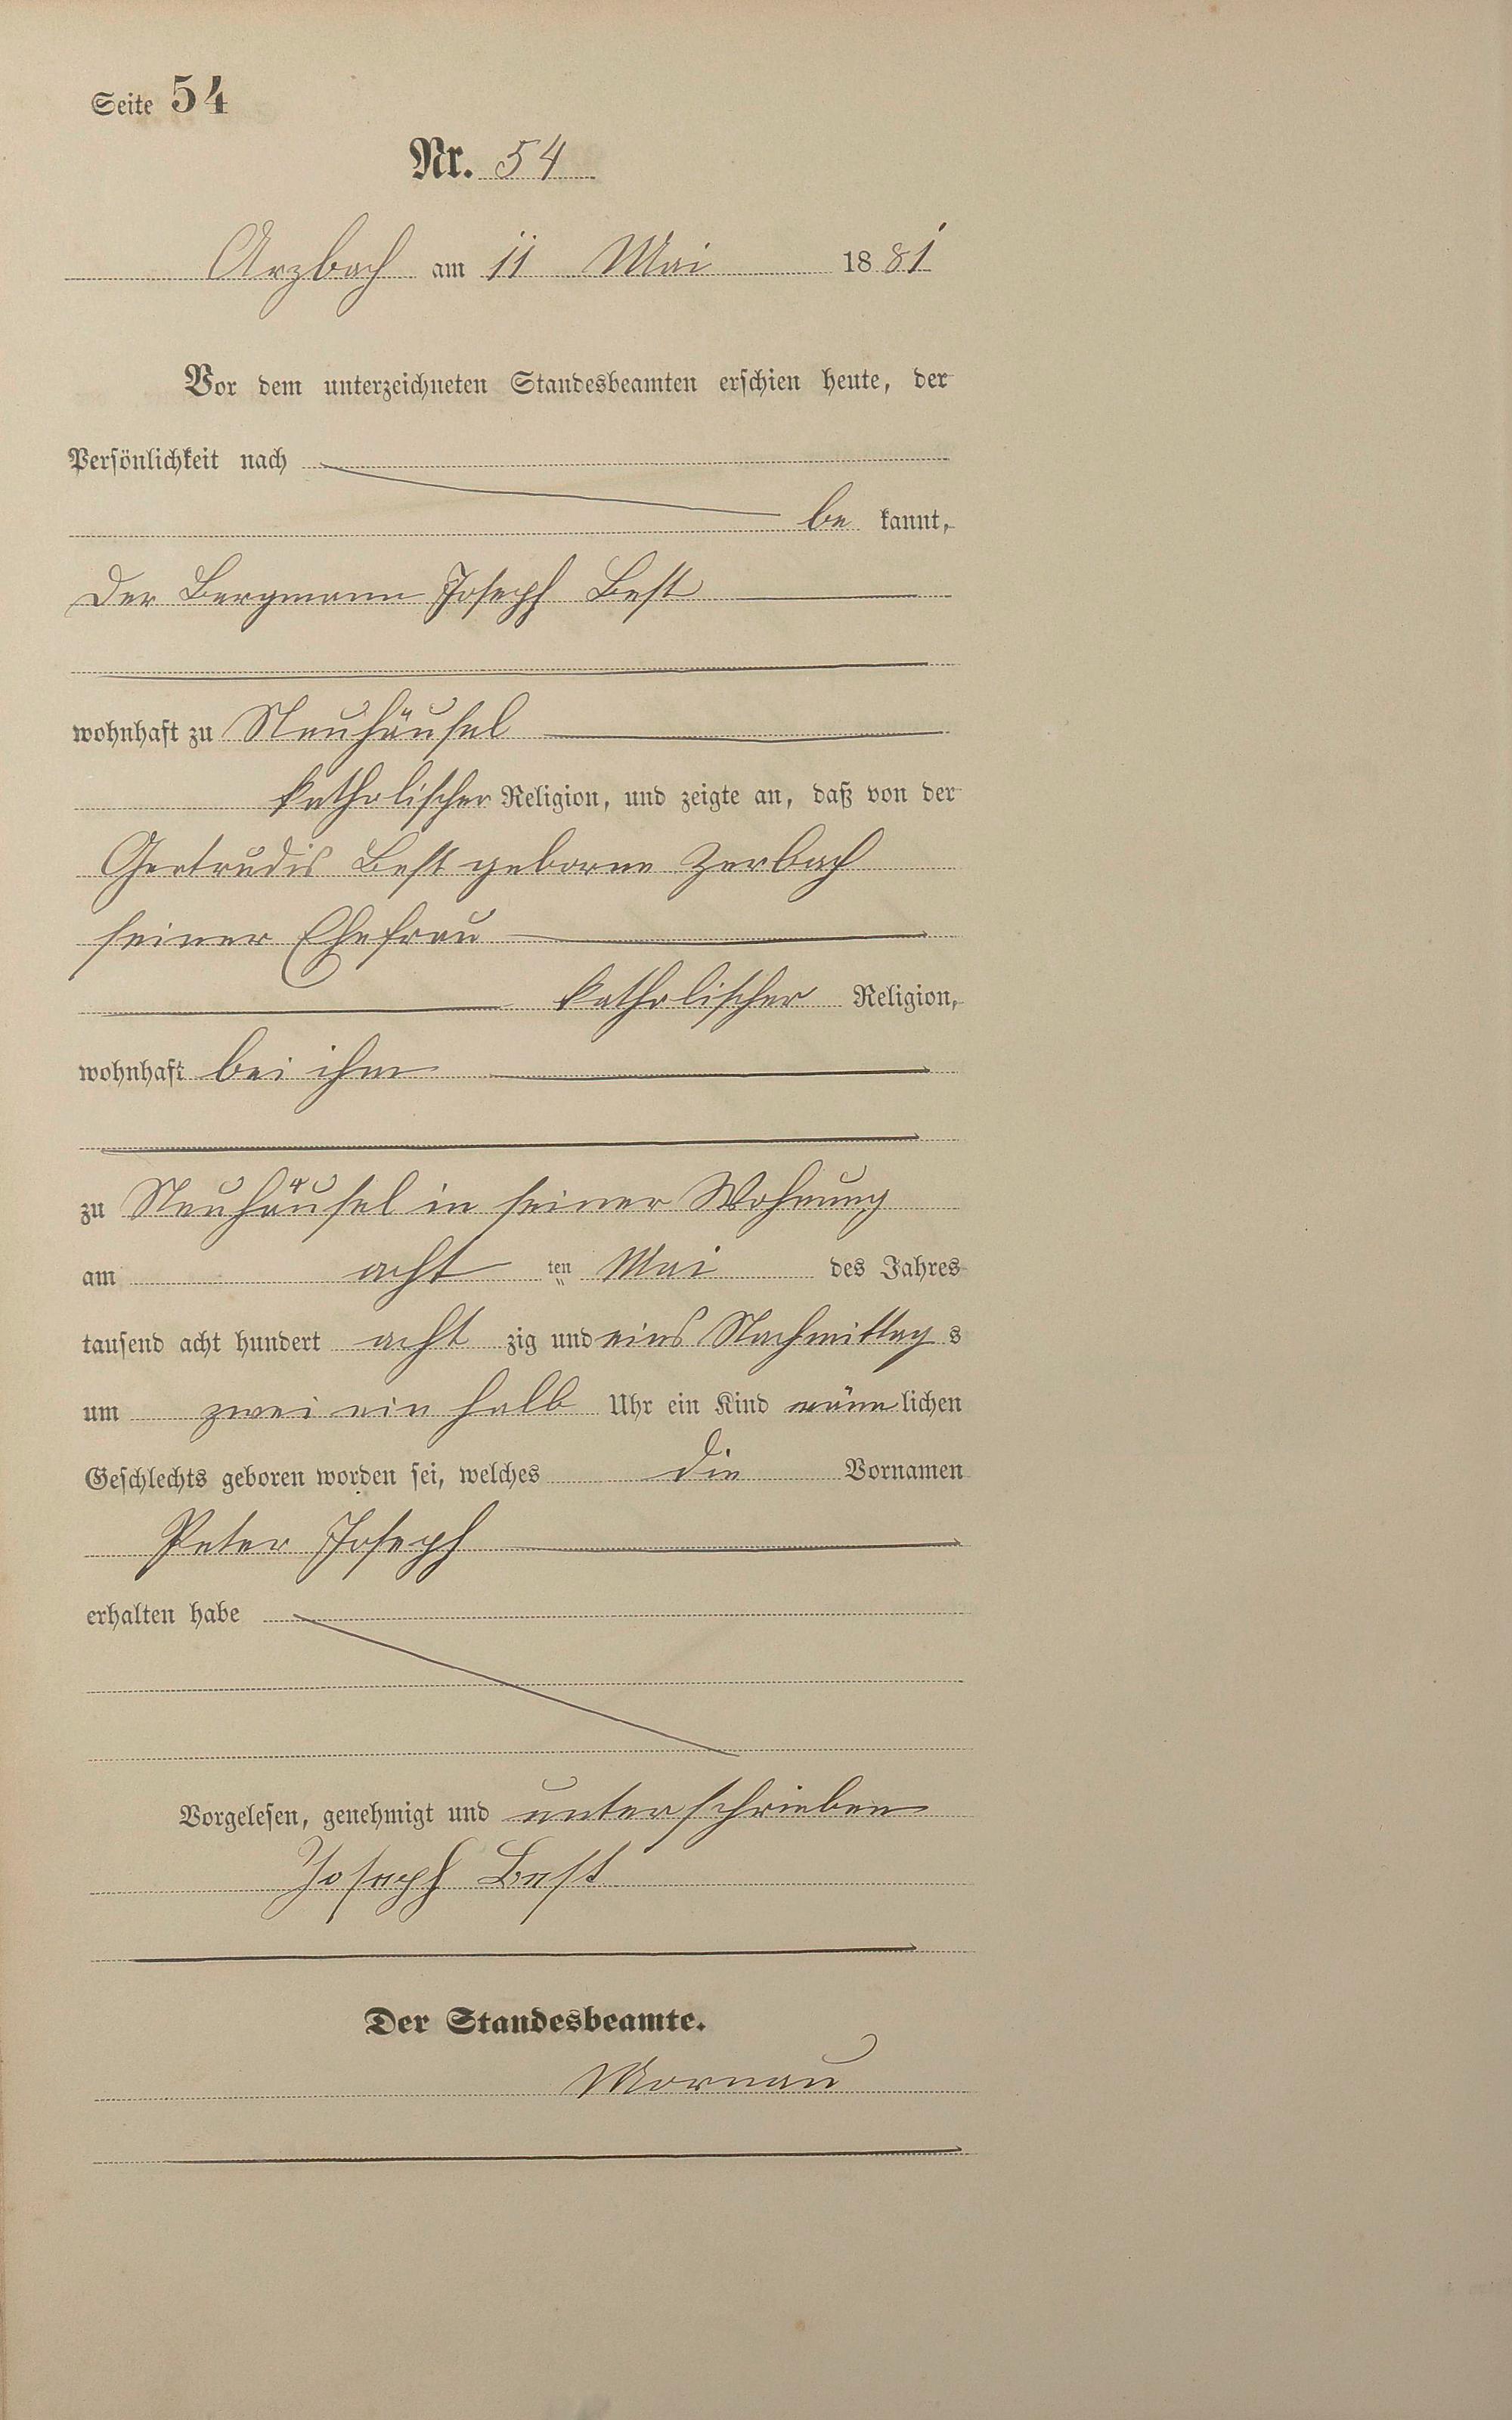 Seite 54
Nr. 54
Arzbach am 11 Mai 1881
Vor dem unterzeichneten Standesbeamten erschien heute, der
Persönlichkeit nach
be kannt,
der Bergmann Joseph Best
wohnhaft zu Neuhäusel
katholischer Religion, und zeigte an, daß von der
Gertrudis Best geborne Zerbach
seiner Ehefrau
katholischer Religion,
wohnhaft bei ihm
zu Neuhäusel in seiner Wohnung
am acht ten Mai des Jahres
tausend acht hundert acht zig und eins Nachmittag s
um zwei ein halb Uhr ein Kind männ lichen
Geschlechts geboren worden sei, welches die Vornamen
Peter Joseph
erhalten habe
Vorgelesen, genehmigt und unterschrieben
Joseph Best
Der Standesbeamte.